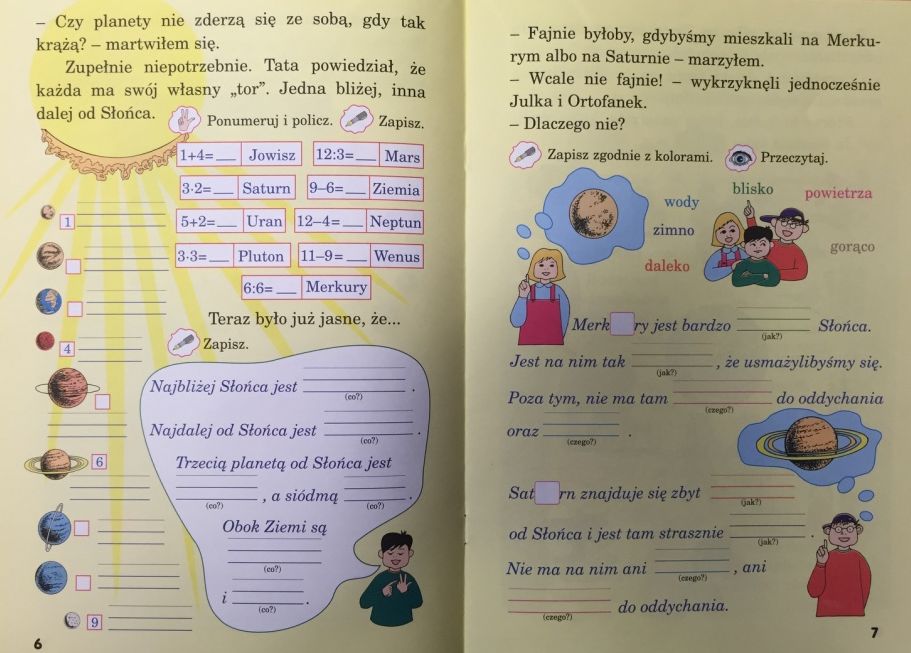 – Czy planety nie zderzą się ze sobą, gdy tak
krążą? – martwiłem się.
Zupełnie niepotrzebnie. Tata powiedział, że
każda ma swój własny „tor”. Jedna bliżej, inna
dalej od Słońca.
Ponumeruj i policz. Zapisz.
1+4=__ Jowisz 12:3=__ Mars
3·2=__ Saturn 9–6=__ Ziemia
5+2=__ Uran 12–4=__ Neptun
3·3=__ Pluton 11–9=__ Wenus
6:6=__ Merkury
1
4
6
9
Teraz było już jasne, że...
Zapisz.
Najbliżej Słońca jest ______ .
(co?)
Najdalej od Słońca jest ______ .
(co?)
Trzecią planetą od Słońca jest
______ , a siódmą ______ .
(co?) (co?)
Obok Ziemi są
______
(co?)
i ______ .
(co?)
6
– Fajnie byłoby, gdybyśmy mieszkali na Merku-
rym albo na Saturnie – marzyłem.
– Wcale nie fajnie! – wykrzyknęli jednocześnie
Julka i Ortofanek.
– Dlaczego nie?
Zapisz zgodnie z kolorami. Przeczytaj.
wody blisko powietrza
zimno
daleko gorąco
Merk ry jest bardzo ______ Słońca.
(jak?)
Jest na nim tak ______ , że usmażylibyśmy się.
(jak?)
Poza tym, nie ma tam ______ do oddychania
(czego?)
oraz ______ .
(czego?)
Sat rn znajduje się zbyt ______
(jak?)
od Słońca i jest tam strasznie ______ .
(jak?)
Nie ma na nim ani ______ , ani
(czego?)
______ do oddychania.
(czego?)
7